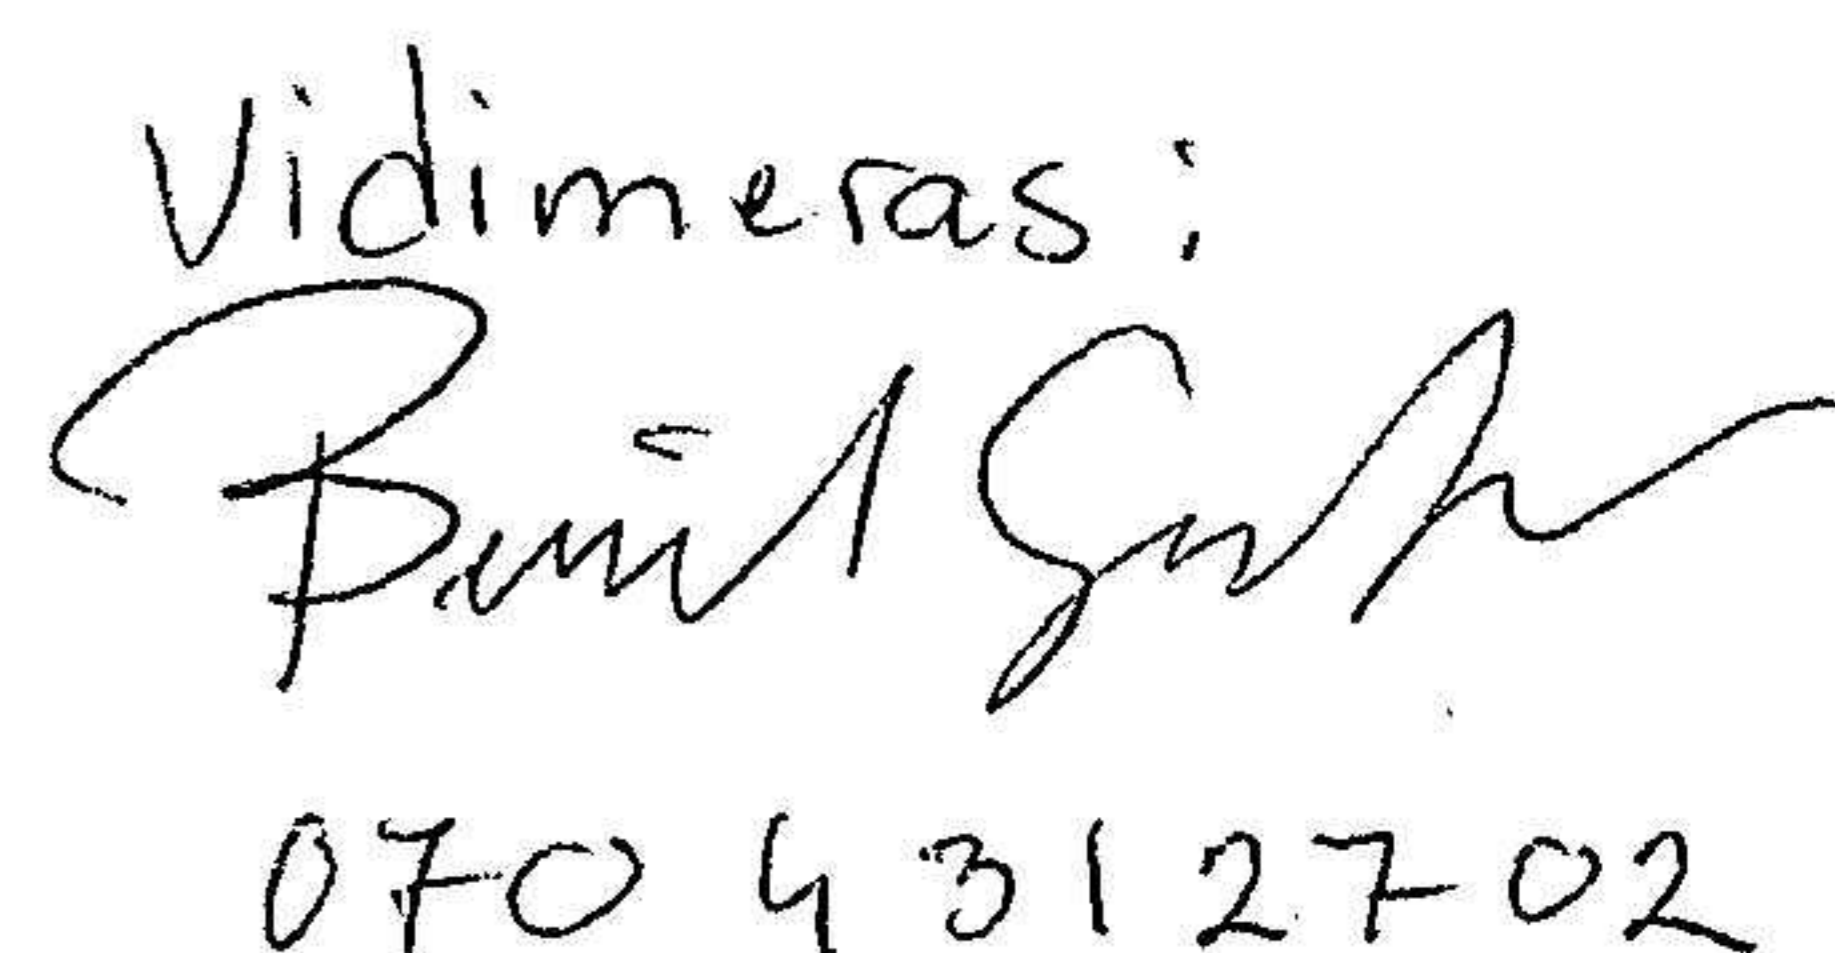 Vidimeras:
070 431 27 02